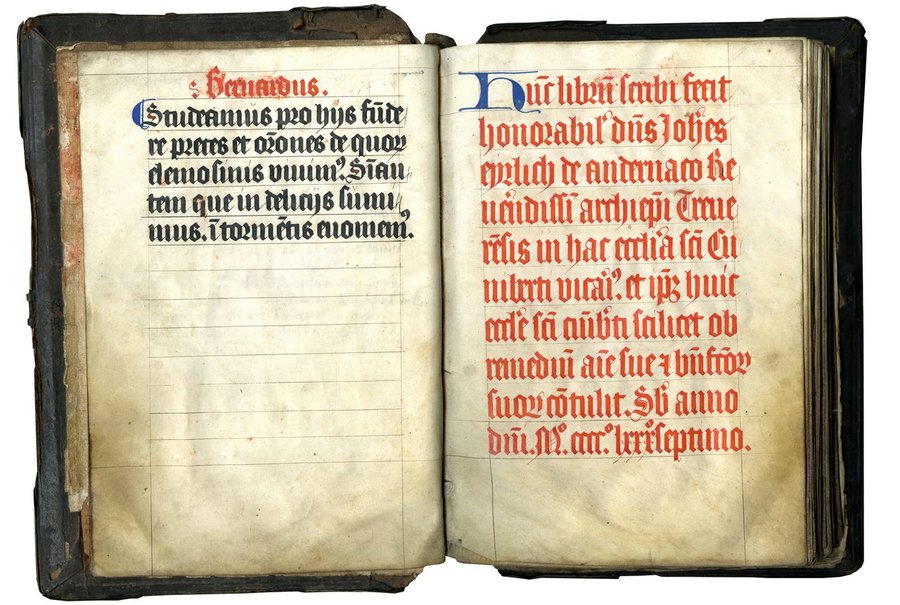 Bernardus.
Studeamus pro hijs fūde
re preces et orōnes de quoꝝ
elemosinis viuimꝰ. Sīau
tem que in delicijs sumi
mus. ī tormētis euomemꝰ.
Hūc librū scribi fecit
honorabil' dn̄s Joh̄es
eyrlich de andernaco Re
uēndissī archiepī Treue
rēsis in hac eccl'ia sc̄i Cu
niberti vicariꝰ. et ip̄ꝫ huic
eccl'e sc̄i cūib'ti scilicet ob
remediū aīe sue ⁊ bn̄fc̄oꝝ
suoꝝ cōtulit. Sb' anno
dn̄i. Mº. ccccº. lxxxº septimo.